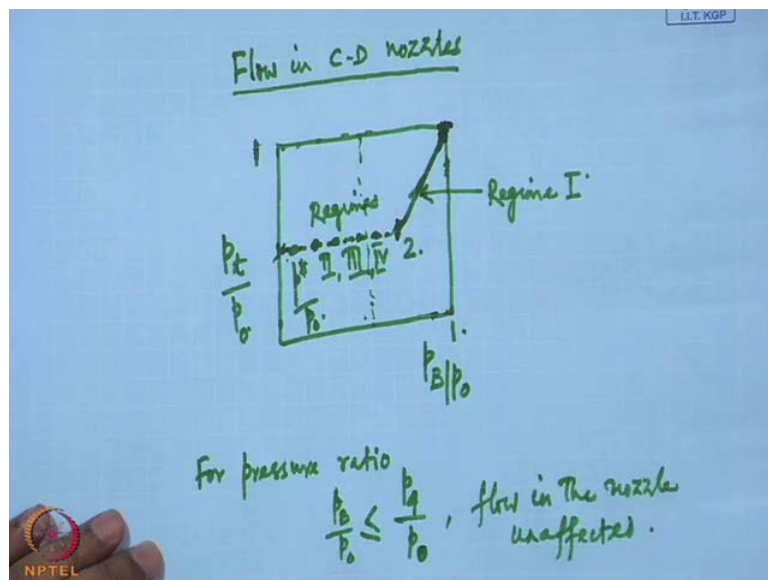 I.I.T. KGP
Flow in C-D nozzles
1
Regimes
Regime I
II, III, IV
2.
p*/p₀
p_t/p₀
1.
p_B/p₀
For pressure ratio
p_B/p₀ ≤ p_q/p₀, flow in the nozzle
unaffected.
NPTEL